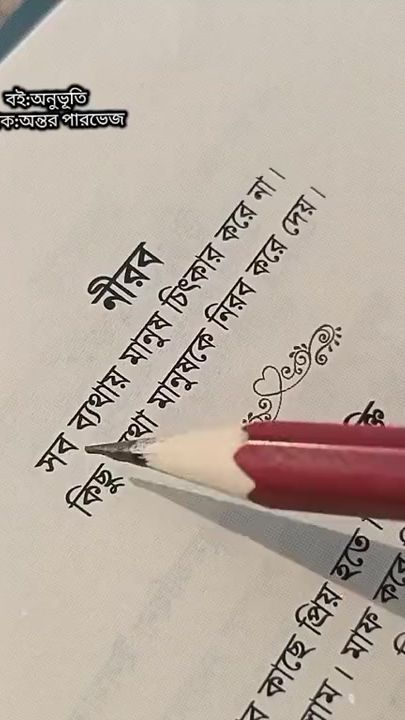 বই:অনুভূতি
ক:অন্তর পারভেজ
নীরব
সব ব্যথায় মানুষ চিৎকার করে না।
কিছু থা মানুষকে নিরব করে দেয়।
কাছে প্রিয় হতে
লাম। মাফ করে